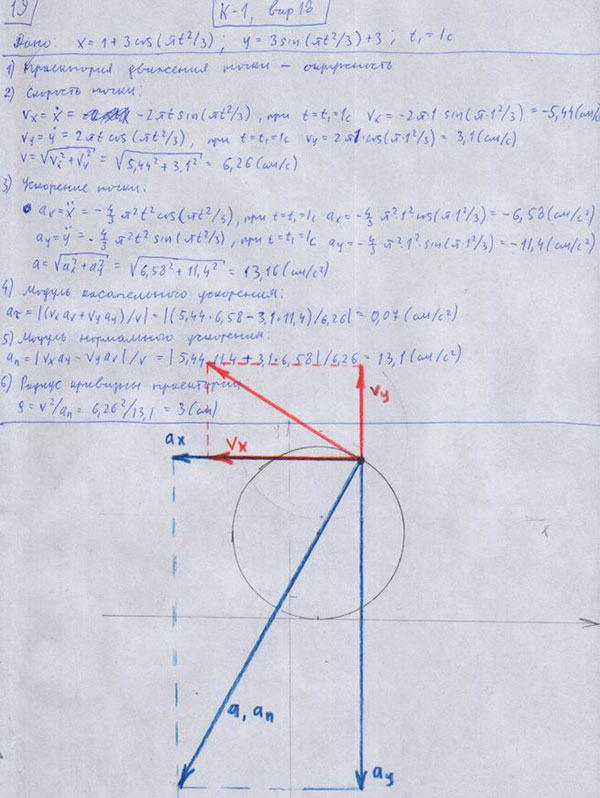 19
К-1, вар 18
Дано: x = 1 + 3cos(πt²/3); y = 3sin(πt²/3) + 3; t₁ = 1с
1) Траектория движения точки — окружность
2) Скорость точки:
Vx = ẋ = -2πt sin(πt²/3), при t = t₁ = 1с Vx = -2π·1·sin(π·1²/3) = -5,44(см/с)
Vy = ẏ = 2πt cos(πt²/3), при t = t₁ = 1с Vy = 2π1·cos(π·1²/3) = 3,1(см/с)
V = √(Vx² + Vy²) = √(5,44² + 3,1²) = 6,26(см/с)
3) Ускорение точки:
ax = ẍ = -4/3 π²t² cos(πt²/3), при t = t₁ = 1с ax = -4/3 π²1²cos(π·1²/3) = -6,58(см/с²)
ay = ÿ = -4/3 π²t² sin(πt²/3), при t = t₁ = 1с ay = -4/3 π²·1²·sin(π·1²/3) = -11,4(см/с²)
a = √(ax² + ay²) = √(6,58² + 11,4²) = 13,16(см/с²)
4) Модуль касательного ускорения:
aτ = |(Vx ax + Vy ay)/V| = |(5,44·6,58 - 3,1·11,4)/6,26| = 0,07(см/с²)
5) Модуль нормального ускорения:
an = |Vx ay - Vy ax|/V = |5,44·11,4 + 3,1·6,58|/6,26 = 13,1(см/с²)
6) Радиус кривизны траектории:
ρ = V²/an = 6,26²/13,1 = 3(см)
Vy
y
ax
Vx
x
a, an
ay